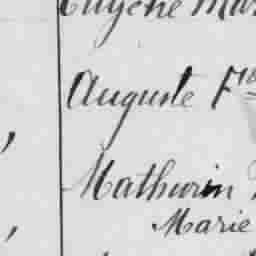 Eugène Mar
Auguste F
Mathurin
Marie